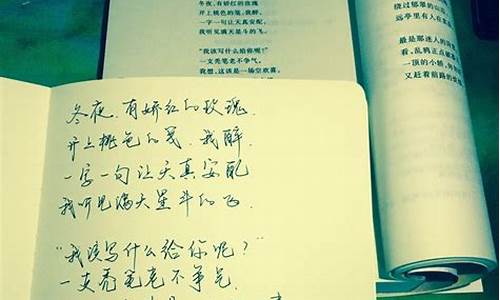 冬夜,有娇红的玫瑰
开上桃色的笺,我醉,
一字一句让天真安配,
我听见满天星斗的飞。
“我该写什么给你呢?”
一支秃笔老不争气。
我想,这该是一场空欢喜,
绕过郁翠的山
远亭里有人在
最是那迷人的
看,乱鸦正点
一顶的小轿,
又赶着前路的
冬夜,有娇红的玫瑰,
开上桃色的笺,我醉,
一字一句让天真安配
我听见满天星斗的飞
“我该写什么给你呢?”
一支秃笔老不争气